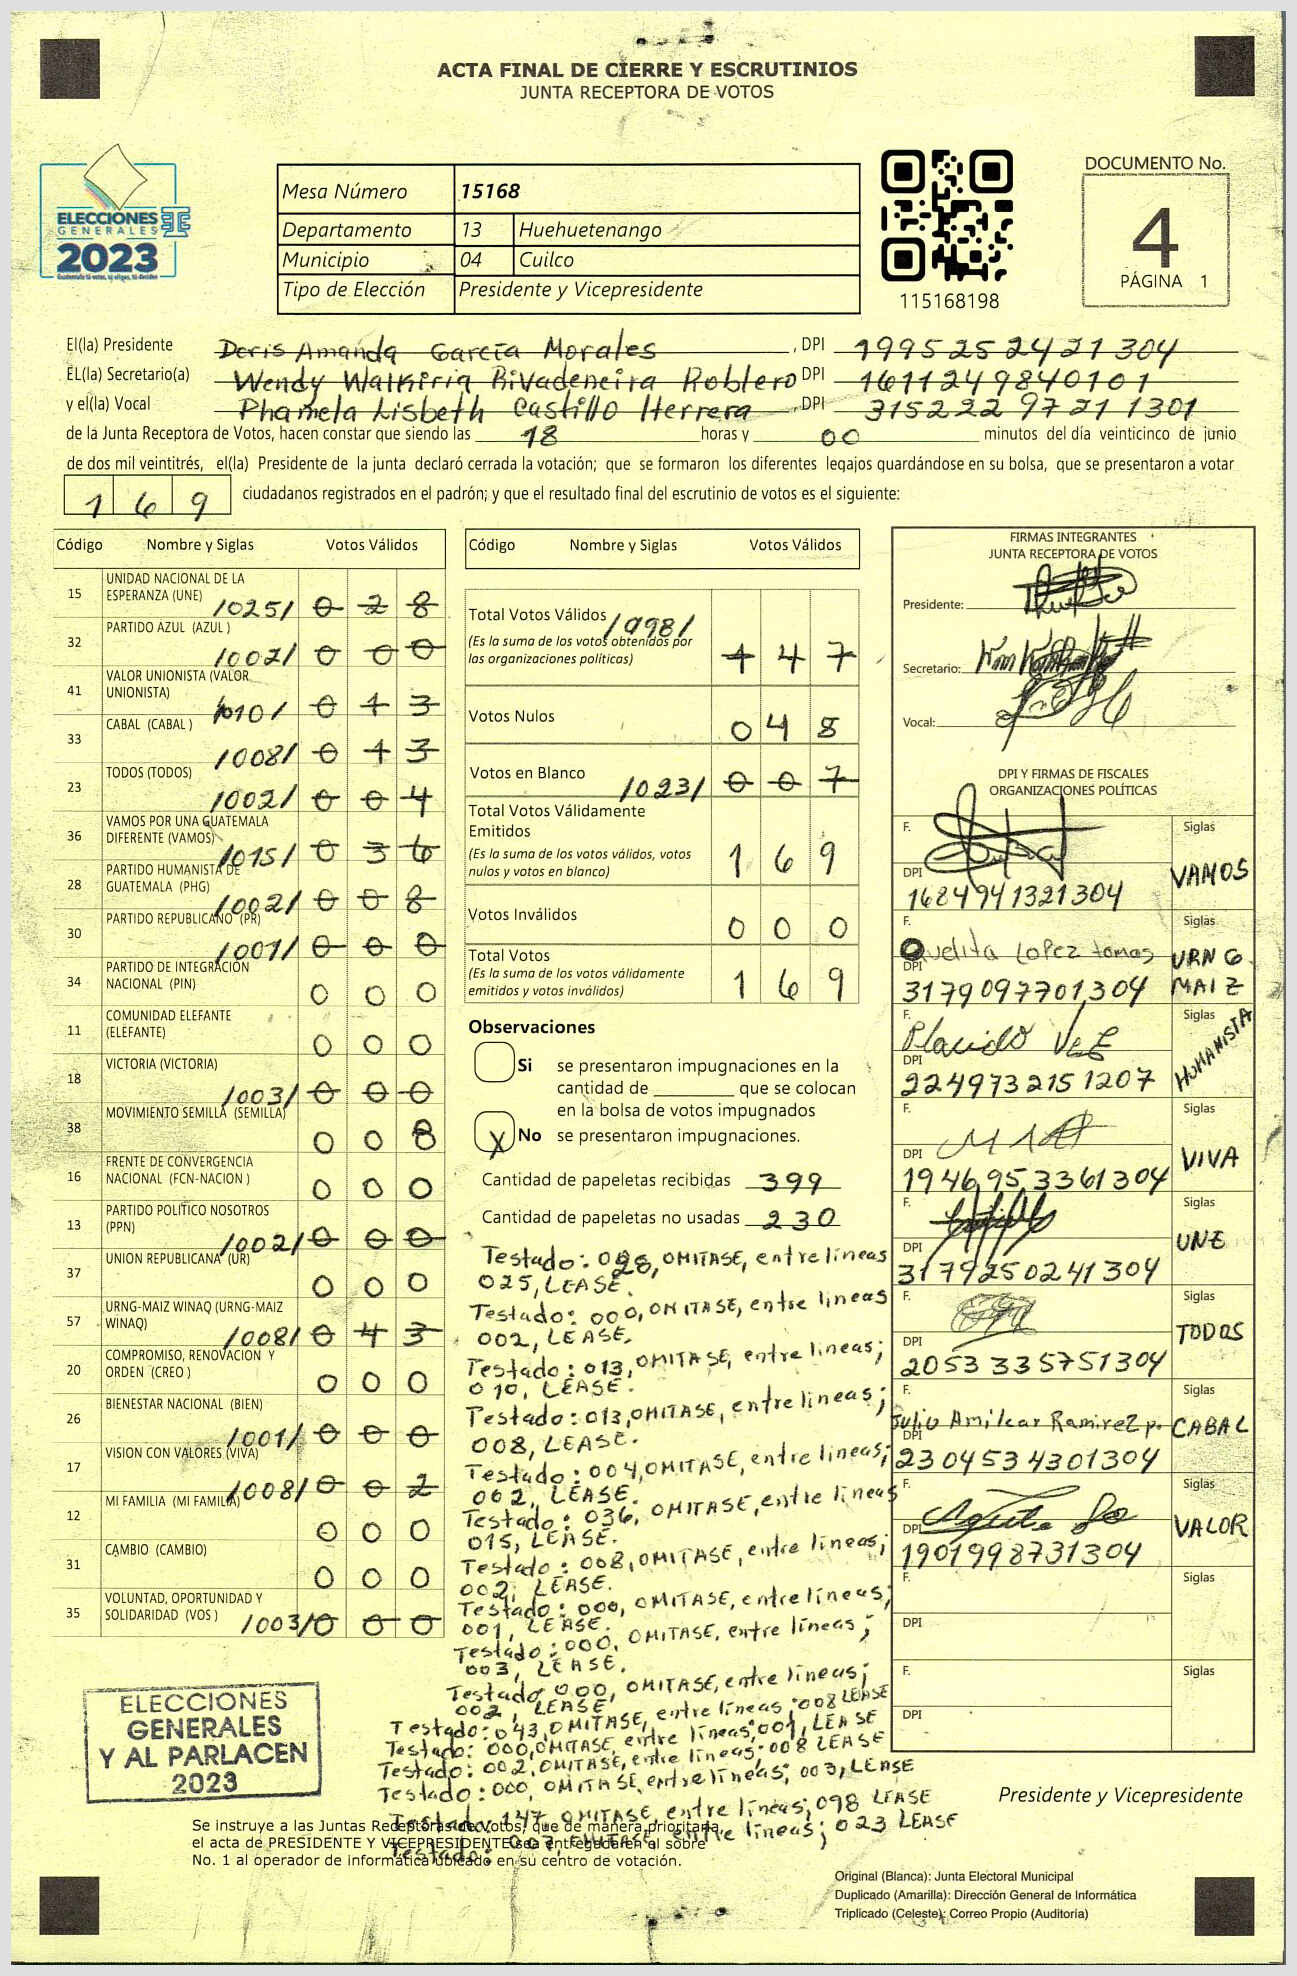 ACTA FINAL DE CIERRE Y ESCRUTINIOS
JUNTA RECEPTORA DE VOTOS
ELECCIONES
GENERALES
2023
Mesa Número 15168
Departamento 13 Huehuetenango
Municipio 04 Cuilco
Tipo de Elección Presidente y Vicepresidente
115168198
DOCUMENTO No.
4
PÁGINA 1
El(la) Presidente Doris Amanda García Morales, DPI 1995252421304
EL(la) Secretario(a) Wendy Walkiria Rivadeneira Roblero DPI 1611249840101
y el(la) Vocal Phamela Lisbeth Castillo Herrera, DPI 3152229721 1301
de la Junta Receptora de Votos, hacen constar que siendo las 18 horas y 00 minutos del día veinticinco de junio
de dos mil veintitrés, el(la) Presidente de la junta declaró cerrada la votación; que se formaron los diferentes legajos guardándose en su bolsa, que se presentaron a votar
169 ciudadanos registrados en el padrón; y que el resultado final del escrutinio de votos es el siguiente:
Código Nombre y Siglas Votos Válidos
15 UNIDAD NACIONAL DE LA
ESPERANZA (UNE) /025/ 0 2 8
32 PARTIDO AZUL (AZUL ) /002/ 0 0 0
41 VALOR UNIONISTA (VALOR
UNIONISTA) /010/ 0 1 3
33 CABAL (CABAL ) /008/ 0 1 3
23 TODOS (TODOS) /002/ 0 0 4
36 VAMOS POR UNA GUATEMALA
DIFERENTE (VAMOS) /015/ 0 3 6
28 PARTIDO HUMANISTA DE
GUATEMALA (PHG) /002/ 0 0 8
30 PARTIDO REPUBLICANO (PR) /001/ 0 0 0
34 PARTIDO DE INTEGRACIÓN
NACIONAL (PIN) 0 0 0
11 COMUNIDAD ELEFANTE
(ELEFANTE) 0 0 0
18 VICTORIA (VICTORIA) /003/ 0 0 0
38 MOVIMIENTO SEMILLA (SEMILLA) 0 0 8
16 FRENTE DE CONVERGENCIA
NACIONAL (FCN-NACION ) 0 0 0
13 PARTIDO POLITICO NOSOTROS
(PPN) /002/ 0 0 0
37 UNION REPUBLICANA (UR) 0 0 0
57 URNG-MAIZ WINAQ (URNG-MAIZ
WINAQ) /008/ 0 4 3
20 COMPROMISO, RENOVACION Y
ORDEN (CREO ) 0 0 0
26 BIENESTAR NACIONAL (BIEN) /001/ 0 0 0
17 VISION CON VALORES (VIVA) /008/ 0 0 2
12 MI FAMILIA (MI FAMILIA) 0 0 0
31 CAMBIO (CAMBIO) 0 0 0
35 VOLUNTAD, OPORTUNIDAD Y
SOLIDARIDAD (VOS ) /003/ 0 0 0
Código Nombre y Siglas Votos Válidos
Total Votos Válidos /098/ 1 4 7
(Es la suma de los votos obtenidos por
las organizaciones políticas)
Votos Nulos 0 4 8
Votos en Blanco /023/ 0 0 7
Total Votos Válidamente
Emitidos
(Es la suma de los votos válidos, votos
nulos y votos en blanco) 1 6 9
Votos Inválidos 0 0 0
Total Votos
(Es la suma de los votos válidamente
emitidos y votos inválidos) 1 6 9
Observaciones
Si se presentaron impugnaciones en la
cantidad de ________ que se colocan
en la bolsa de votos impugnados
X No se presentaron impugnaciones.
Cantidad de papeletas recibidas 399
Cantidad de papeletas no usadas 230
Testado: 028, OMITASE, entre lineas
025, LEASE.
Testado: 000, OMITASE, entre lineas
002, LEASE.
Testado: 013, OMITASE, entre lineas;
010, LEASE.
Testado: 013, OMITASE, entre lineas;
008, LEASE.
Testado: 004, OMITASE, entre lineas;
002, LEASE.
Testado: 036, OMITASE, entre lineas
015, LEASE.
Testado: 008, OMITASE, entre lineas;
002, LEASE.
Testado: 000, OMITASE, entre lineas;
001, LEASE.
Testado: 000, OMITASE, entre lineas;
003, LEASE.
Testado 000, OMITASE, entre lineas;
002, LEASE
Testado: 043, OMITASE, entre lineas; 008 LEASE
Testado: 000, OMITASE, entre lineas; 001, LEASE
Testado: 002, OMITASE, entre lineas; 008 LEASE
Testado: 000, OMITASE, entre lineas; 003, LEASE
Testado 147, OMITASE, entre lineas; 098 LEASE
Testado: 007, OMITASE, entre lineas; 023 LEASE
FIRMAS INTEGRANTES
JUNTA RECEPTORA DE VOTOS
Presidente:
Secretario:
Vocal:
DPI Y FIRMAS DE FISCALES
ORGANIZACIONES POLÍTICAS
F. Siglas
DPI 1684941321304 VAMOS
F. Quelita Lopez tomas Siglas
DPI 3179097701304 URNG MAIZ
F. Placido Siglas
DPI 2249732151207 HUMANISTA
F. Siglas
DPI 1946953361304 VIVA
F. Siglas
DPI 3179250241304 UNE
F. Siglas
DPI 2053335751304 TODOS
F. Julio Amilcar Ramirez p. Siglas
DPI 2304534301304 CABAL
F. Siglas
DPI 1901998731304 VALOR
F. Siglas
DPI
F. Siglas
DPI
ELECCIONES
GENERALES
Y AL PARLACEN
2023
Presidente y Vicepresidente
Se instruye a las Juntas Receptoras de Votos, que de manera prioritaria,
el acta de PRESIDENTE Y VICEPRESIDENTE sea entregada en el sobre
No. 1 al operador de informática ubicado en su centro de votación.
Original (Blanca): Junta Electoral Municipal
Duplicado (Amarilla): Dirección General de Informática
Triplicado (Celeste): Correo Propio (Auditoria)